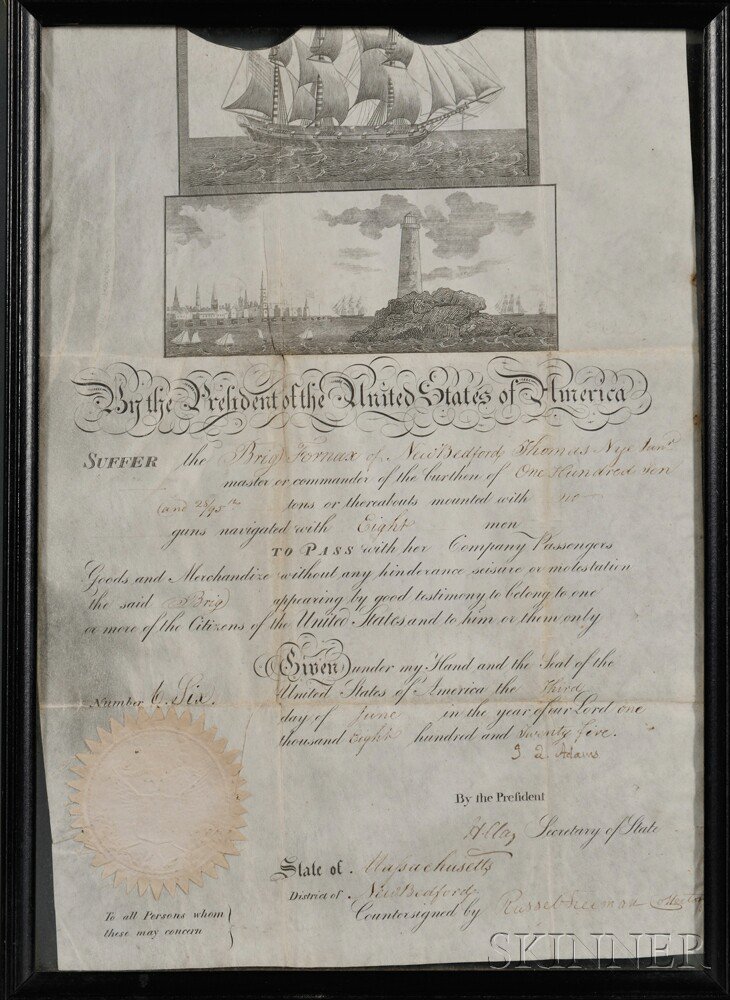 By the President of the United States of America
SUFFER the Brig Fornax of New Bedford Thomas Nye Junr
master or commander of the burthen of One Hundred ten
(and 28/95th tons or thereabouts mounted with no
guns navigated with Eight men
TO PASS with her Company Passengers
Goods and Merchandize without any hinderance seisure or molestation
the said Brig appearing by good testimony to belong to one
or more of the Citizens of the United States and to him or them only
Given under my Hand and the Seal of the
Number 6. Six. United States of America the Third
day of June in the year of our Lord one
thousand Eight hundred and twenty five.
J. Q. Adams
By the President
H. Clay Secretary of State
State of Massachusetts
District of New Bedford
Countersigned by Russel Freeman Collector
To all Persons whom
these may concern
SKINNER